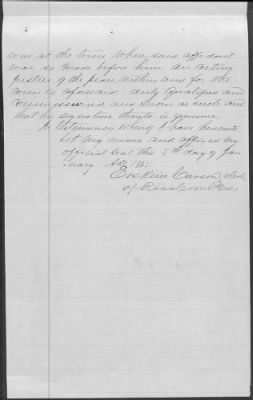 was at the time when said affidavit
was so made before him an acting
Justice of the peace within and for the
County aforesaid duly qualified and
Commissioned and sworn as such and
that his signature thereto is genuine
In testimony whereof I have hereunto
set my name and affixed my
official seal this 5th day of Jan
uary AD
Erskine Carson Clerk
of